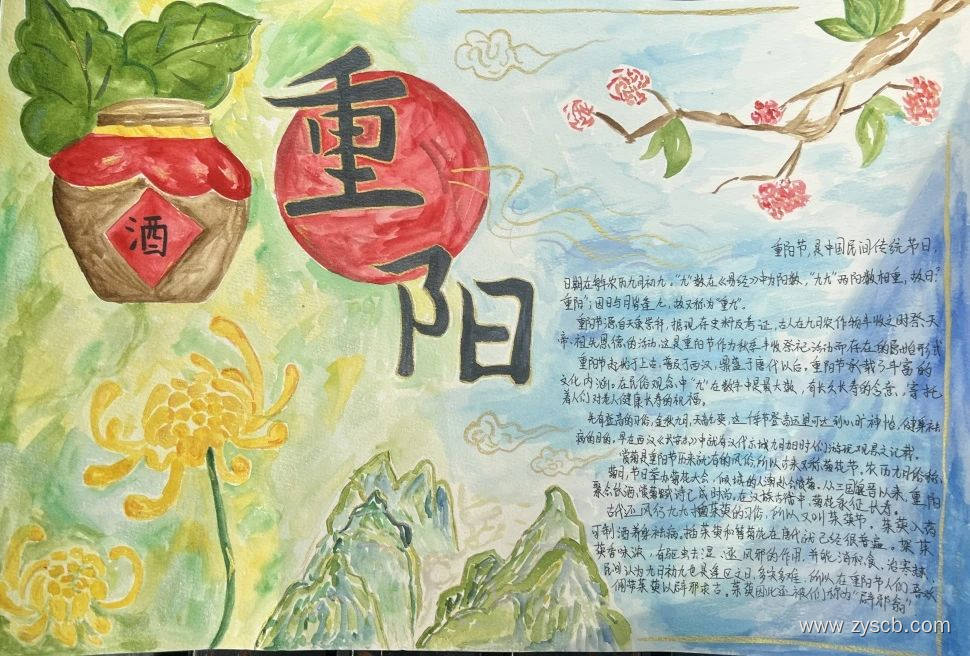 重
阳
酒
重阳节,是中国民间传统节日,
日期在每年农历九月初九。“九”数在《易经》中为阳数,“九九”两阳数相重,故曰“
重阳”;因日与月皆逢九,故又称为“重九”。
重阳节源自天象崇拜,据现存史料及考证,古人在九月农作物丰收之时祭天
帝、祖先恩德的活动,这是重阳节作为秋季丰收祭祀活动而存在的原始形式
重阳节起始于上古,普及于西汉,鼎盛于唐代以后。重阳节承载了丰富的
文化内涵,在民俗观念中“九”在数字中是最大数,有长久长寿的含意,寄托
着人们对老人健康长寿的祝福。
先有登高的习俗,金秋九月,天高气爽,这个季节登高远望可达到心旷神怡、健身祛
病的目的。早在西汉《长安志》中就有汉代京城九月九日时人们游玩观景之记载。
赏菊是重阳节历来就有的风俗,所以古来又称菊花节。农历九月俗称
菊月,节日举办菊花大会,倾城的人潮赴会赏菊。从三国魏晋以来,重阳
聚会饮酒、赏菊赋诗已成时尚。在汉族古俗中,菊花象征长寿。
古代还风行九九插茱萸的习俗,所以又叫茱萸节。茱萸入药
可制酒养身祛病。插茱萸和簪菊花在唐代就已经很普遍。
茱萸香味浓,有驱虫去湿、逐风邪的作用,并能消积食,治寒热。
民间认为九月初九也是逢凶之日,多灾多难,所以在重阳节人们喜欢
佩带茱萸以辟邪求吉。茱萸因此还被人们称为“辟邪翁”
www.zyscb.com